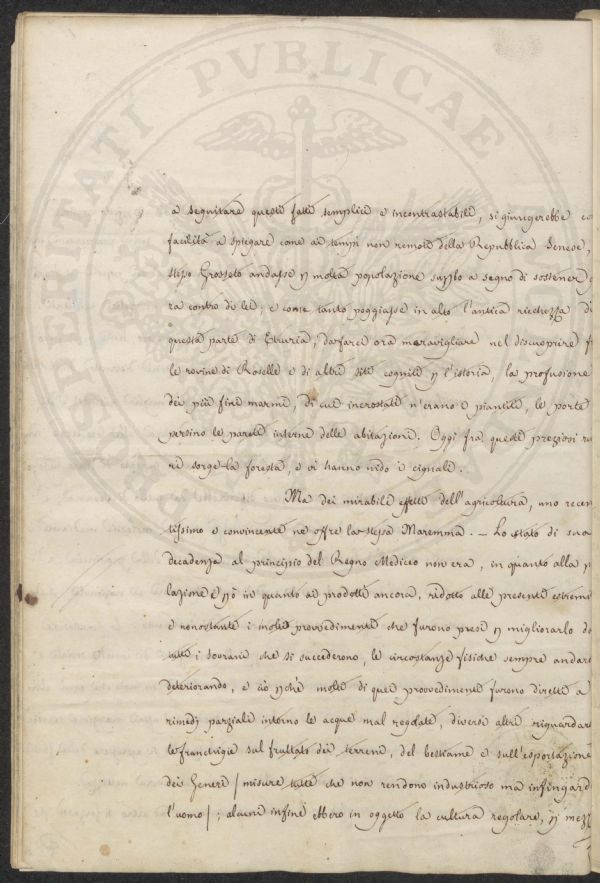 PROSPERITATI PVBLICAE
a seguitare questi fatti semplici e incontrastabili, si giungerebbe co
facilità a spiegare come ai tempi non remoti della Repubblica Senese,
stesso Grosseto andasse p molta popolazione a segno di sostener
ra contro di lei; e come tanto poggiasse in alto l'antica ricchezza di
questa parte di Etruria, da farci ora maravigliare nel discuoprire fr
le rovine di Roselle e di altri siti cogniti p l'istoria, la profusione
dei più fini marmi, di cui incrostati n'erano i piantiti, le porte
persino le pareti interne delle abitazioni. Oggi fra questi preziosi ru
ri sorge la foresta, e vi hanno nido i cignali.
Ma dei mirabili effetti dell'agricoltura, uno recen
tissimo e convincente ne offre la stessa Maremma. - Lo stato di sua
decadenza al principio del Regno Mediceo non era, in quanto alla p
lazione e pò in quanto ai prodotti ancora, ridotto alle presenti estremi
e nonostante i molti provvedimenti che furono presi p migliorarlo da
tutti i Sovrani che si succederono, le circostanze fisiche sempre andar
deteriorando, e ciò pchè molti di quei provvedimenti furono diretti a
rimedj parziali intorno le acque mal regolate, diversi altri riguardar
le franchigie sul fruttato dei terreni, del bestiame e sull'esportazione
dei Generi / misure tutte che non rendono industrioso ma infingard
l'uomo /; alcuni infine ebbero in oggetto la cultura regolare, p mezz